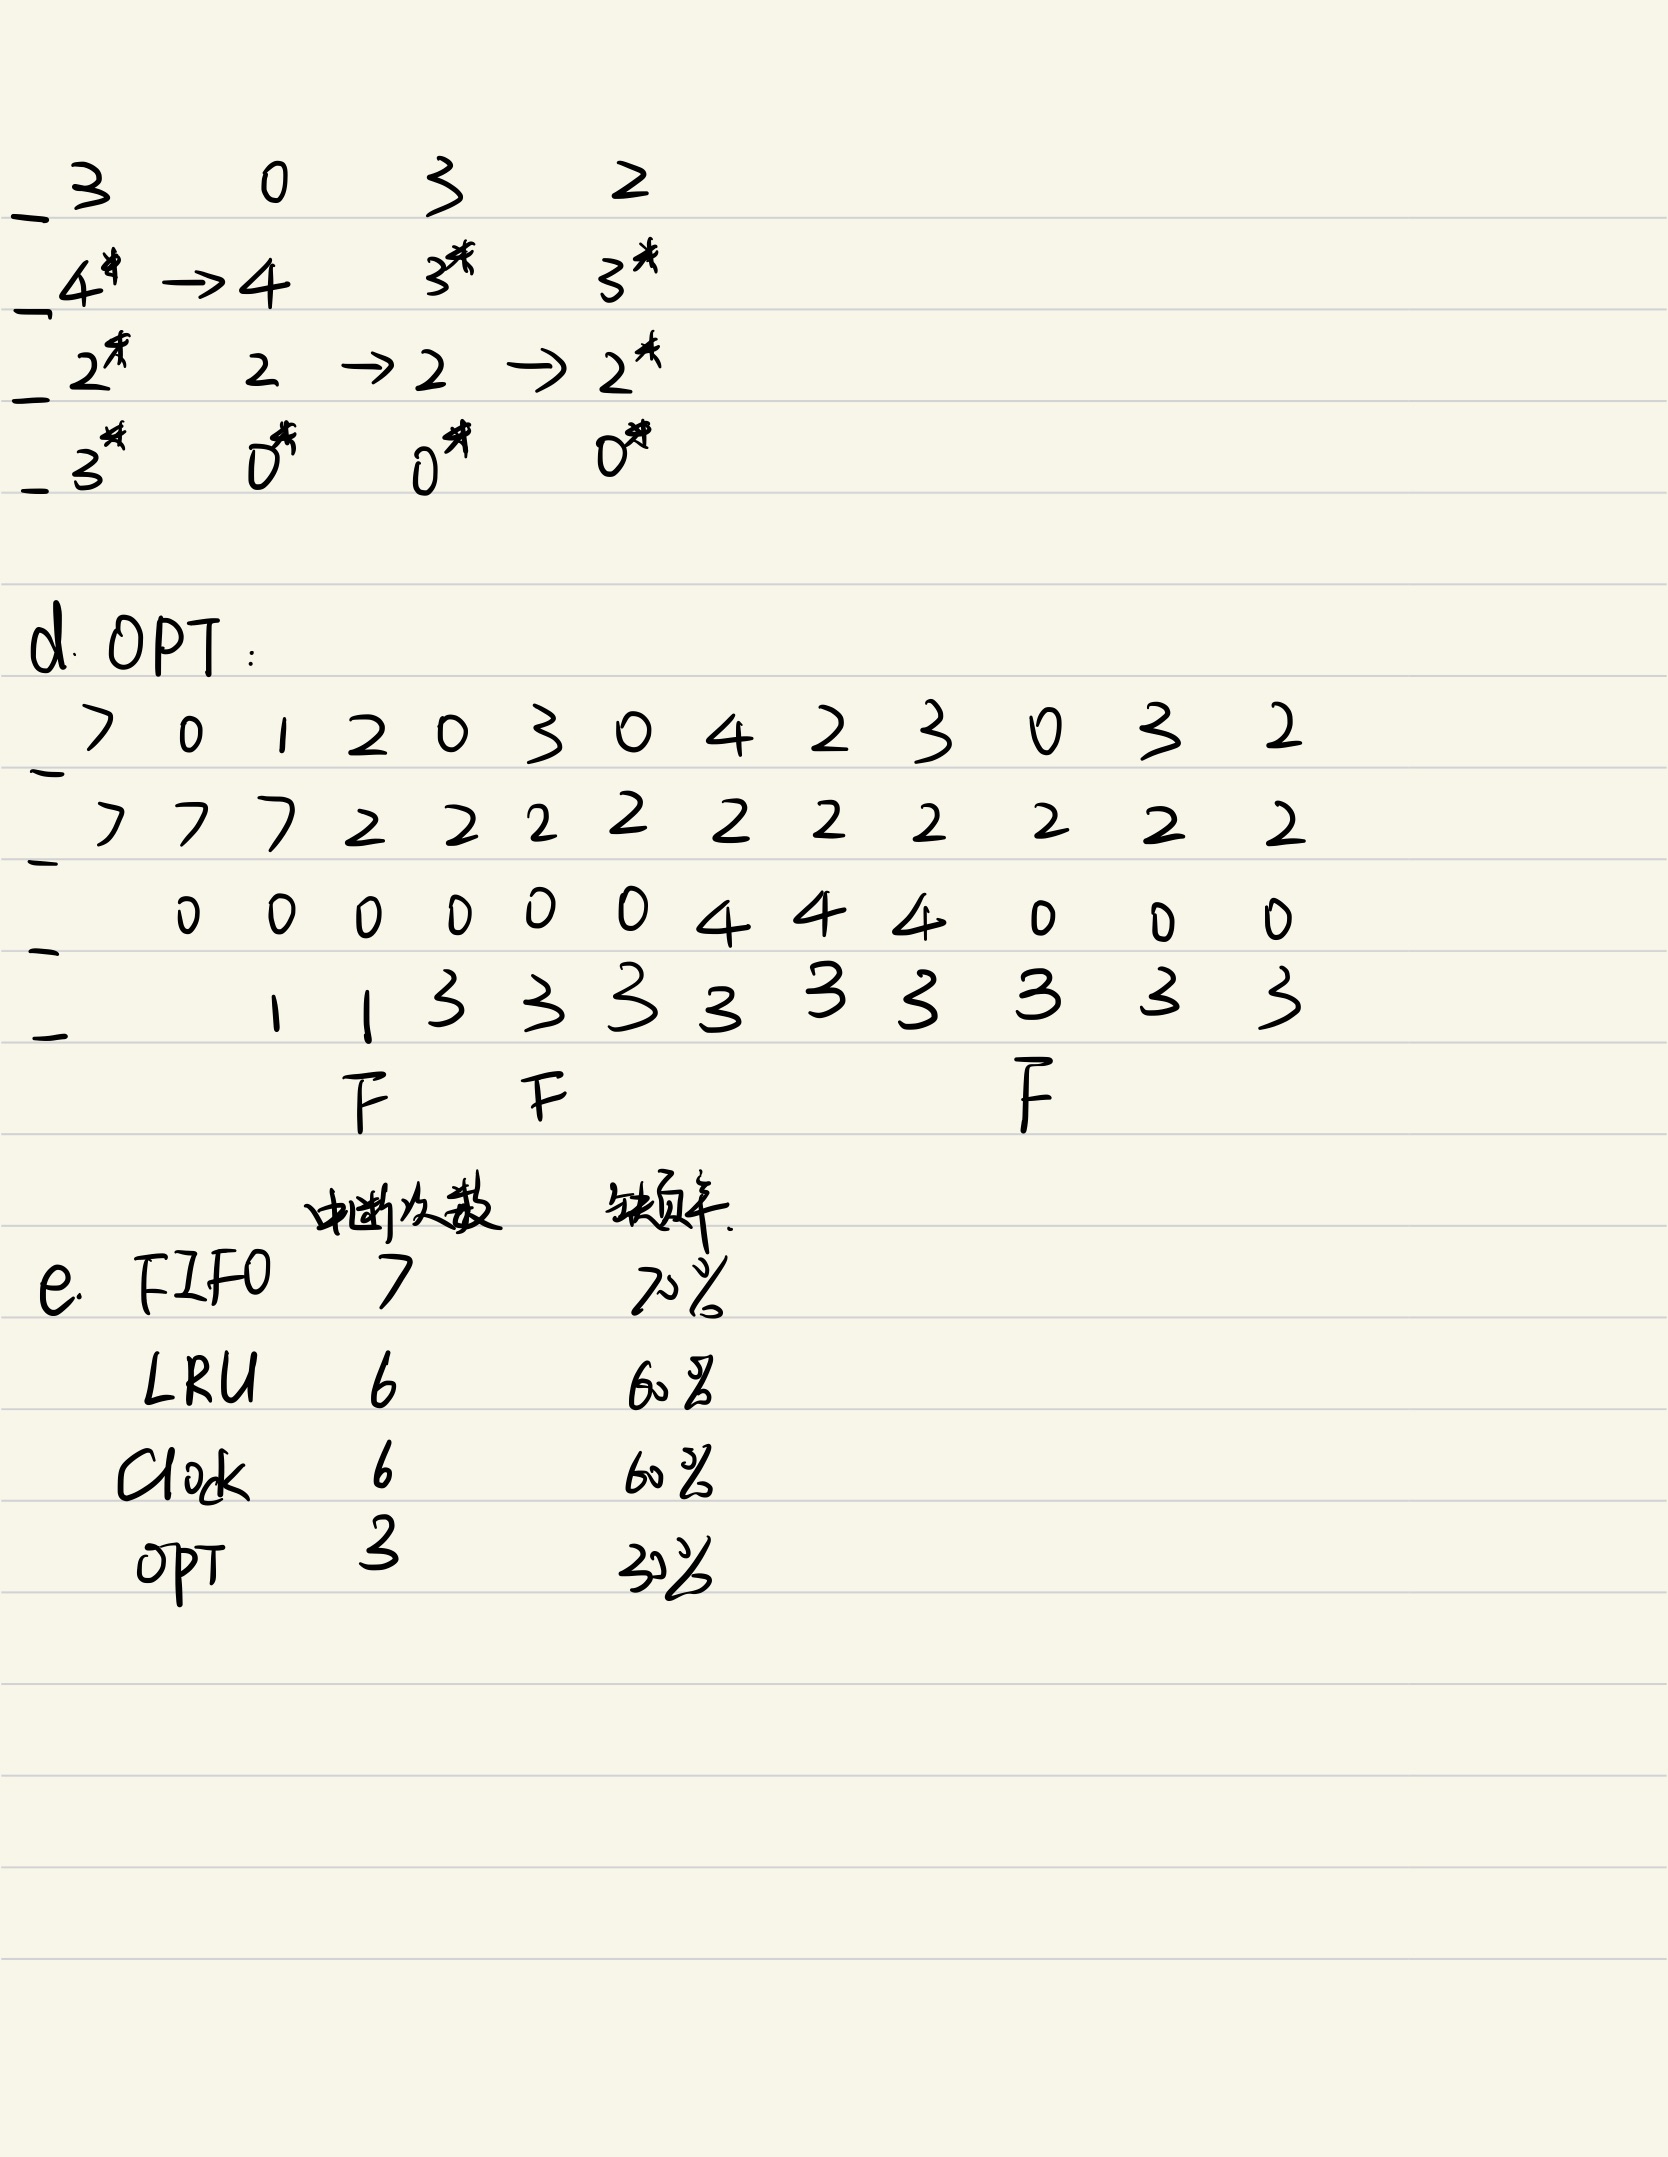 3 0 3 2
4* → 4 3* 3*
2* 2 → 2 → 2*
3* 0* 0* 0*
d. OPT:
7 0 1 2 0 3 0 4 2 3 0 3 2
7 7 7 2 2 2 2 2 2 2 2 2 2
0 0 0 0 0 0 4 4 4 0 0 0
1 1 3 3 3 3 3 3 3 3 3
F F F
中断次数 缺页率.
e. FIFO 7 70%
LRU 6 60%
Clock 6 60%
OPT 3 30%